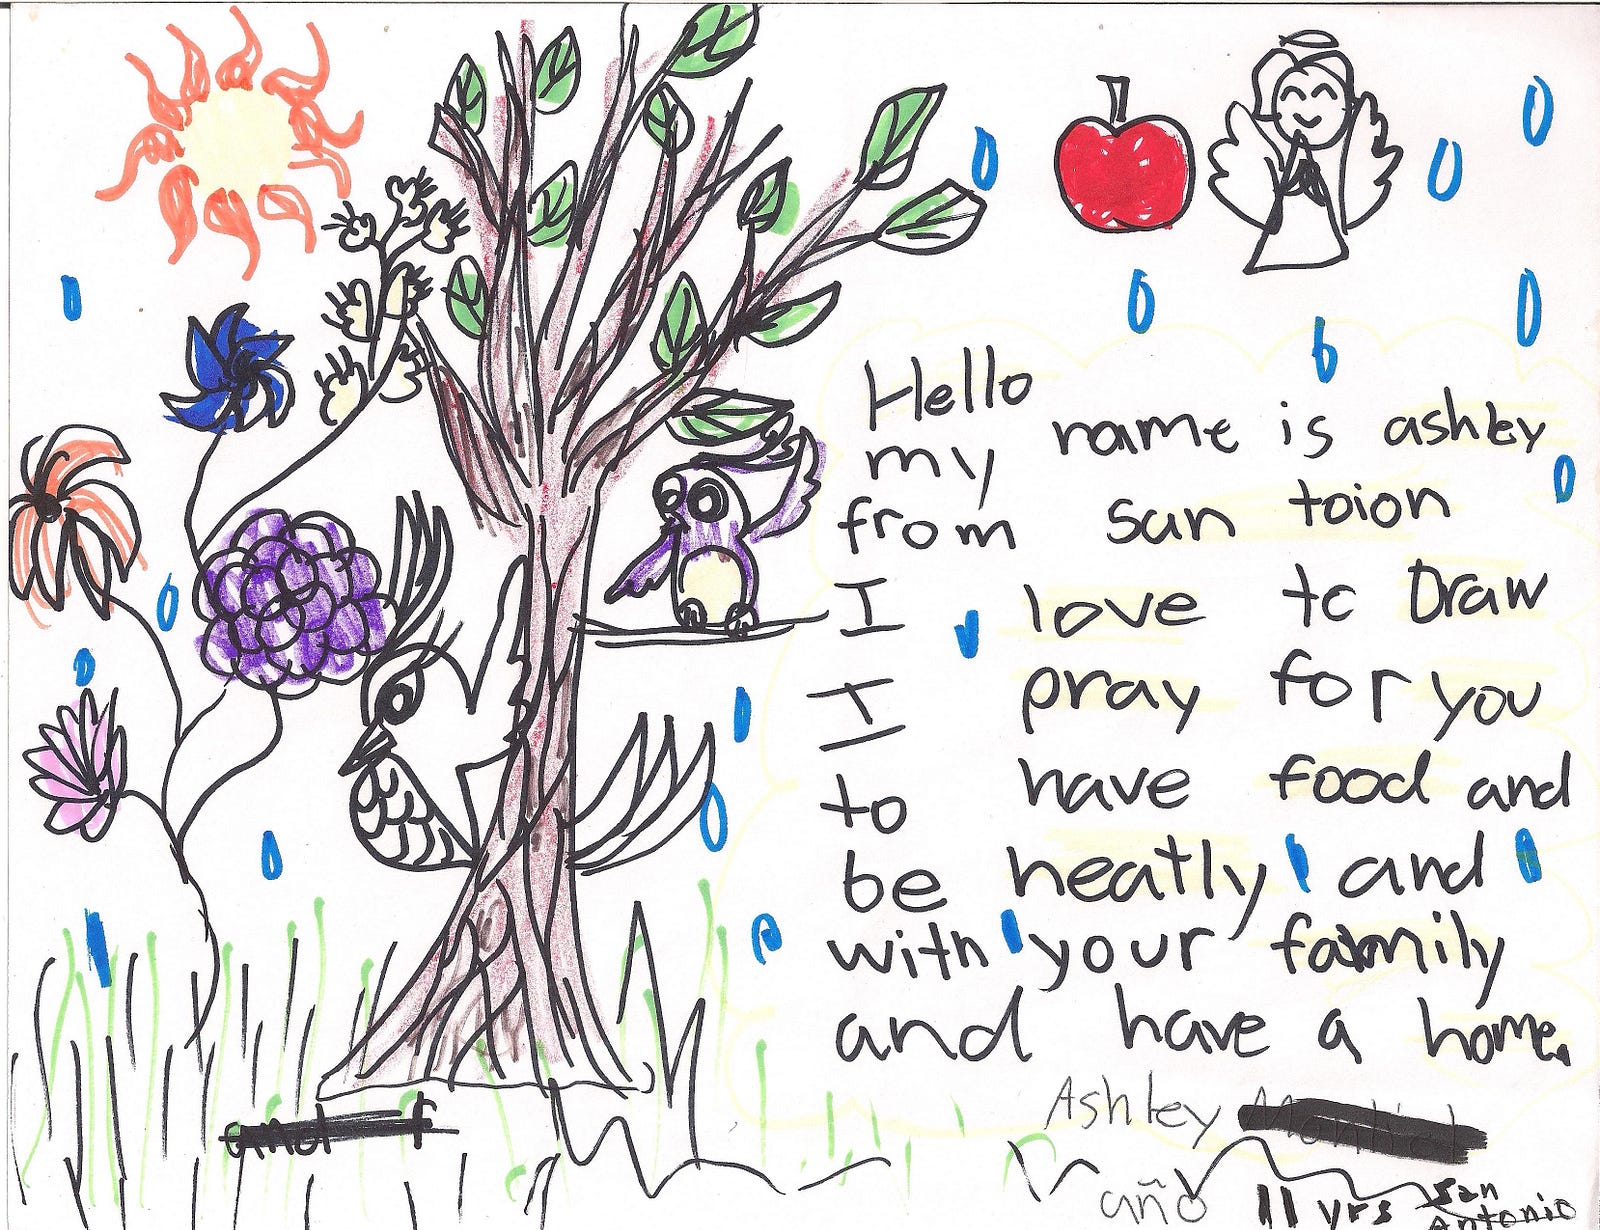 Hello
my name is ashley
from san toion
I love to Draw
I pray for you
to have food and
be heatly and
with your family
and have a home.
Ashley
año 11 yrs San
Antonio